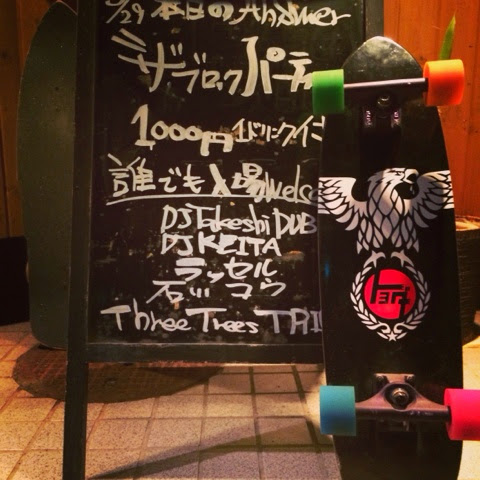 /29 本日の Answer
ザ ブロックパーテ
1000円 1ドリンクイン
誰でも入場welco
DJ Takeshi DUB
DJ KEITA
ラッセル
石ッコウ
Three Trees TRI
トヨダ